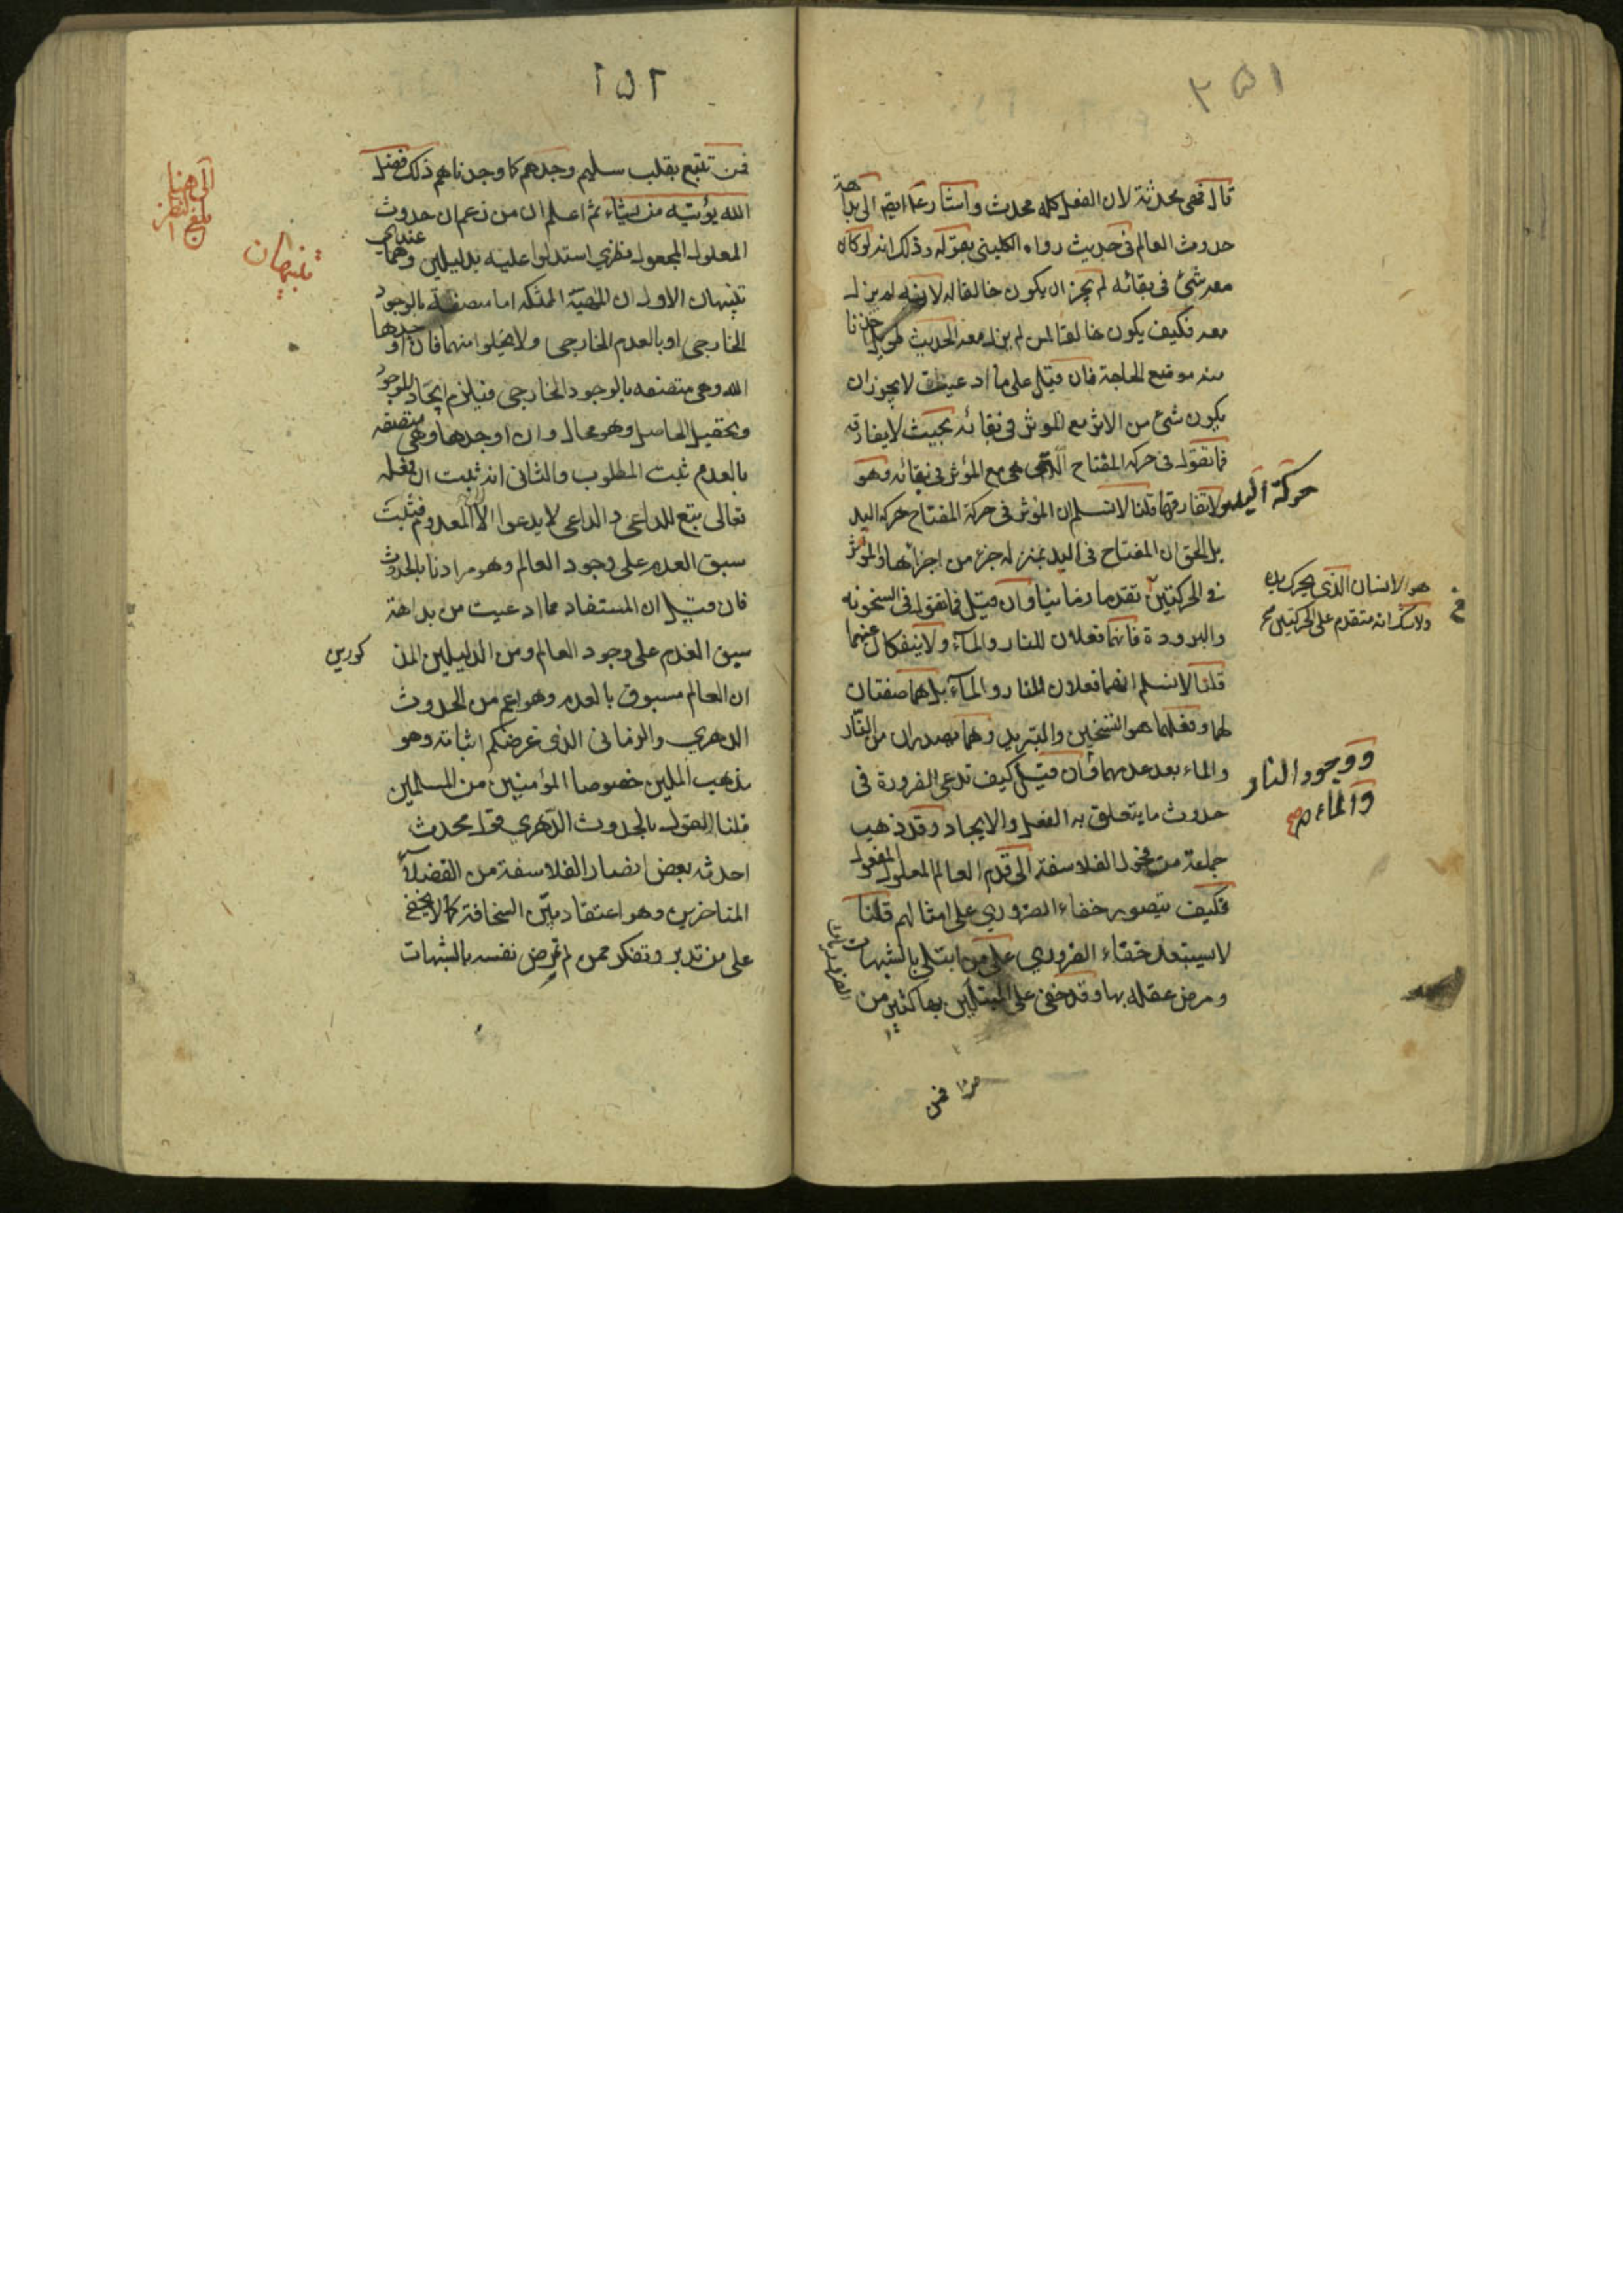 ٢٥١
قال فهي محدثة لان الفعل كله محدث واشار ع ايضا الى بداهة
حدوث العالم في حديث رواه الكليني بقوله وذلك انه لو كان
معه شئ في بقائه لم يجز ان يكون خالقا له لانه لم يزل
معه فكيف يكون خالقا لمن لم يزل معه الحديث طويل اخذنا
منه موضع الحاجة فان قيل على ما ادعيت لا يجوز ان
يكون شئ من الاثر مع المؤثر في بقائه بحيث لا يفارقه
فما تقول في حركة المفتاح التي هي مع المؤثر في بقائه وهو
حركة اليد
ولا تفارقها قلنا لا نسلم ان المؤثر في حركة المفتاح حركة اليد
بل الحق ان المفتاح في اليد بمنزلة جزء من اجزائها والمؤثر
هو الانسان الذي يحرك يده
ولا شك انه متقدم على الحركتين
في الحركتين تقدما زمانيا وان قيل فما تقول في السخونة
والبرودة فانهما فعلان للنار والماء ولا ينفكان عنهما
قلنا لا نسلم انهما فعلان للنار والماء بل هما صفتان
لهما وفعلهما هو التسخين والتبريد وهما يصدران من النار
ووجود النار
والماء صح
والماء بعد عدمهما فان قيل كيف تدعي الضرورة في
حدوث ما يتعلق به الفعل والايجاد وقد ذهب
جماعة من فحول الفلاسفة الى قدم العالم المعلول المفعول
فكيف يتصور خفاء الضروري على امثالهم قلنا
لا يستبعد خفاء الضروري على من ابتلى بالشبهات
ومرض عقله بها وقد خفى على المبتلين بها كثير من
فمن
٢٥٢
فمن تتبع بقلب سليم وجدهم كما وجدناهم ذلك فضل
الى هنا
بلغ النظر
الله يؤتيه من يشاء ثم اعلم ان من زعم ان حدوث
المعلول المجعول نظري استدلوا عليه بدليلين وهما عندي
تنبيهان
تنبيهان الاول ان المهية الممكنة اما متصفة بالوجود
الخارجي او بالعدم الخارجي ولا يخلوا منهما فان اوجدها
الله وهي متصفه بالوجود الخارجي فيلزم ايجاد الموجود
وتحصيل الحاصل وهو محال وان اوجدها وهي متصفه
بالعدم ثبت المطلوب والثاني انه ثبت ان فعله
تعالى يتبع للداعي والداعي لا يدعوا الا المعدوم فثبت
سبق العدم على وجود العالم وهو مرادنا بالحدوث
فان قيل ان المستفاد مما ادعيت من بداهة
سبق العدم على وجود العالم ومن الدليلين المذ كورين
ان العالم مسبوق بالعدم وهو اعم من الحدوث
الدهري والزماني الذي غرضكم اثباته وهو
مذهب المليين خصوصا المؤمنين من المسلمين
قلنا القول بالحدوث الدهري قول محدث
احدثه بعض انصار الفلاسفة من الفضلاء
المتاخرين وهو اعتقاد بين السخافة كما لا يخفى
على من تدبر وتفكر ممن لم يمرض نفسه بالشبهات